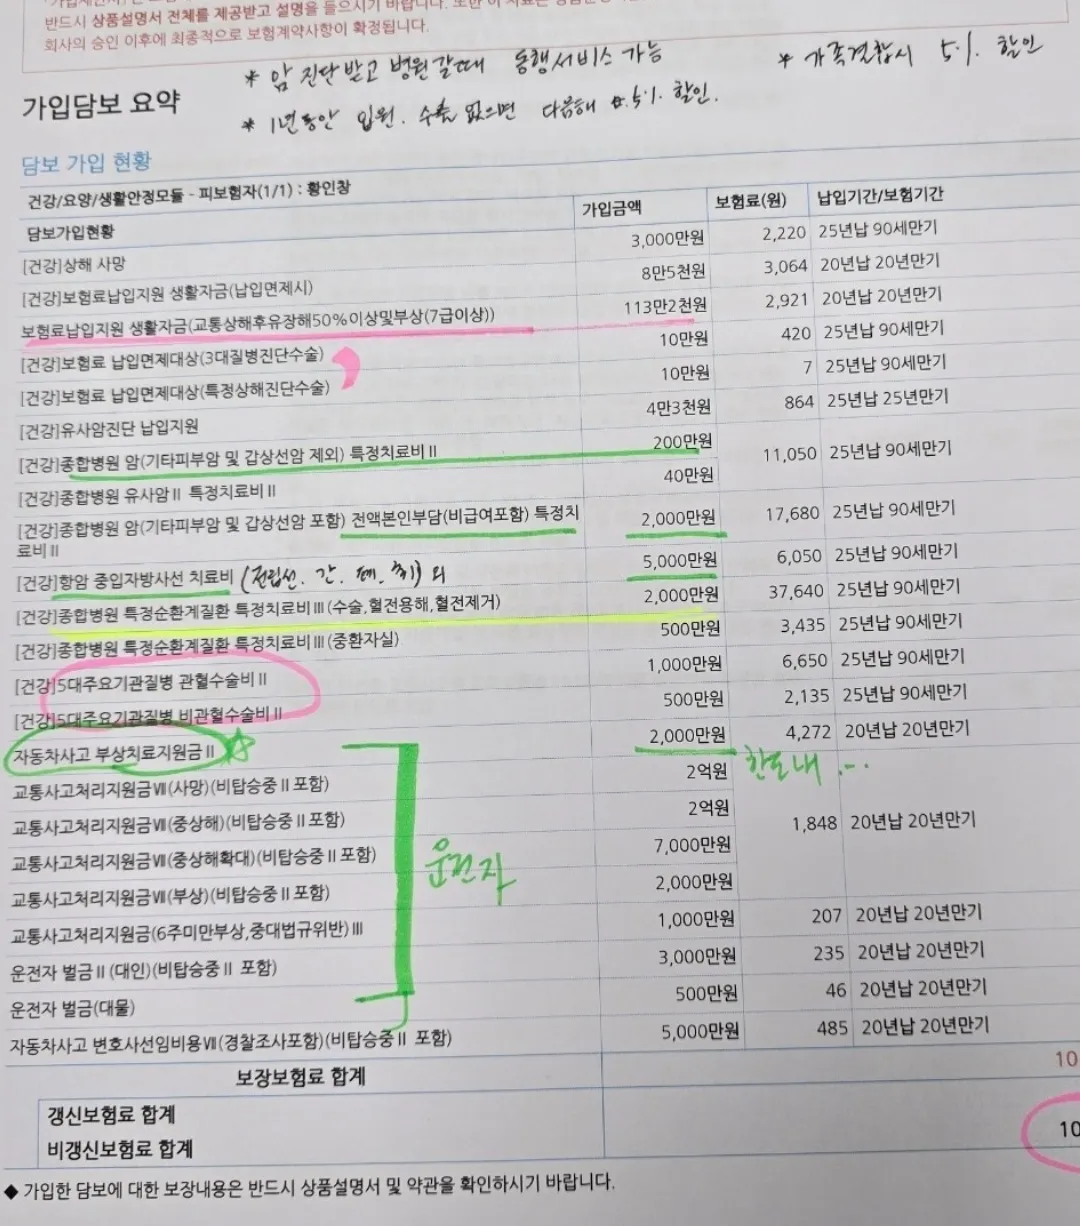 반드시 상품설명서 전체를 제공받고 설명을 들으시기 바랍니다.
회사의 승인 이후에 최종적으로 보험계약사항이 확정됩니다.
* 암 진단받고 병원갈때 동행서비스 가능
* 가족결합시 5%. 할인
가입담보 요약
* 1년동안 입원. 수술 없으면 다음해 5%. 할인.
담보 가입 현황
건강/요양/생활안정모듈 - 피보험자(1/1) : 황인창
담보가입현황 가입금액 보험료(원) 납입기간/보험기간
[건강]상해 사망 3,000만원 2,220 25년납 90세만기
[건강]보험료납입지원 생활자금(납입면제시) 8만5천원 3,064 20년납 20년만기
보험료납입지원 생활자금(교통상해후유장해50%이상및부상(7급이상)) 113만2천원 2,921 20년납 20년만기
[건강]보험료 납입면제대상(3대질병진단수술) 10만원 420 25년납 90세만기
[건강]보험료 납입면제대상(특정상해진단수술) 10만원 7 25년납 90세만기
[건강]유사암진단 납입지원 4만3천원 864 25년납 25년만기
[건강]종합병원 암(기타피부암 및 갑상선암 제외) 특정치료비Ⅱ 200만원 11,050 25년납 90세만기
[건강]종합병원 유사암Ⅱ 특정치료비Ⅱ 40만원
[건강]종합병원 암(기타피부암 및 갑상선암 포함) 전액본인부담(비급여포함) 특정치
료비Ⅱ 2,000만원 17,680 25년납 90세만기
[건강]항암 중입자방사선 치료비 (전립선. 간. 폐. 췌) 외 5,000만원 6,050 25년납 90세만기
[건강]종합병원 특정순환계질환 특정치료비Ⅲ(수술,혈전용해,혈전제거) 2,000만원 37,640 25년납 90세만기
[건강]종합병원 특정순환계질환 특정치료비Ⅲ(중환자실) 500만원 3,435 25년납 90세만기
[건강]5대주요기관질병 관혈수술비Ⅱ 1,000만원 6,650 25년납 90세만기
[건강]5대주요기관질병 비관혈수술비Ⅱ 500만원 2,135 25년납 90세만기
자동차사고 부상치료지원금Ⅱ 2,000만원 4,272 20년납 20년만기
한도내 ...
교통사고처리지원금Ⅶ(사망)(비탑승중Ⅱ포함) 2억원
교통사고처리지원금Ⅶ(중상해)(비탑승중Ⅱ포함) 2억원 1,848 20년납 20년만기
교통사고처리지원금Ⅶ(중상해확대)(비탑승중Ⅱ포함) 7,000만원
운전자
교통사고처리지원금Ⅶ(부상)(비탑승중Ⅱ포함) 2,000만원
교통사고처리지원금(6주미만부상,중대법규위반)Ⅲ 1,000만원 207 20년납 20년만기
운전자 벌금Ⅱ(대인)(비탑승중Ⅱ 포함) 3,000만원 235 20년납 20년만기
운전자 벌금(대물) 500만원 46 20년납 20년만기
자동차사고 변호사선임비용Ⅶ(경찰조사포함)(비탑승중Ⅱ 포함) 5,000만원 485 20년납 20년만기
보장보험료 합계 10
갱신보험료 합계
비갱신보험료 합계 10
◆ 가입한 담보에 대한 보장내용은 반드시 상품설명서 및 약관을 확인하시기 바랍니다.